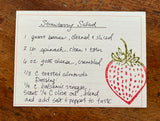 Strawberry Salad
1 quart berries, cleaned + sliced
2 lb. spinach, clean + torn
4 oz. goat cheese, crumbled
1/2 C toasted almonds
Dressing
1/4 C balsamic vinegar
1/4 C olive oil, blend
and add salt + pepper to taste